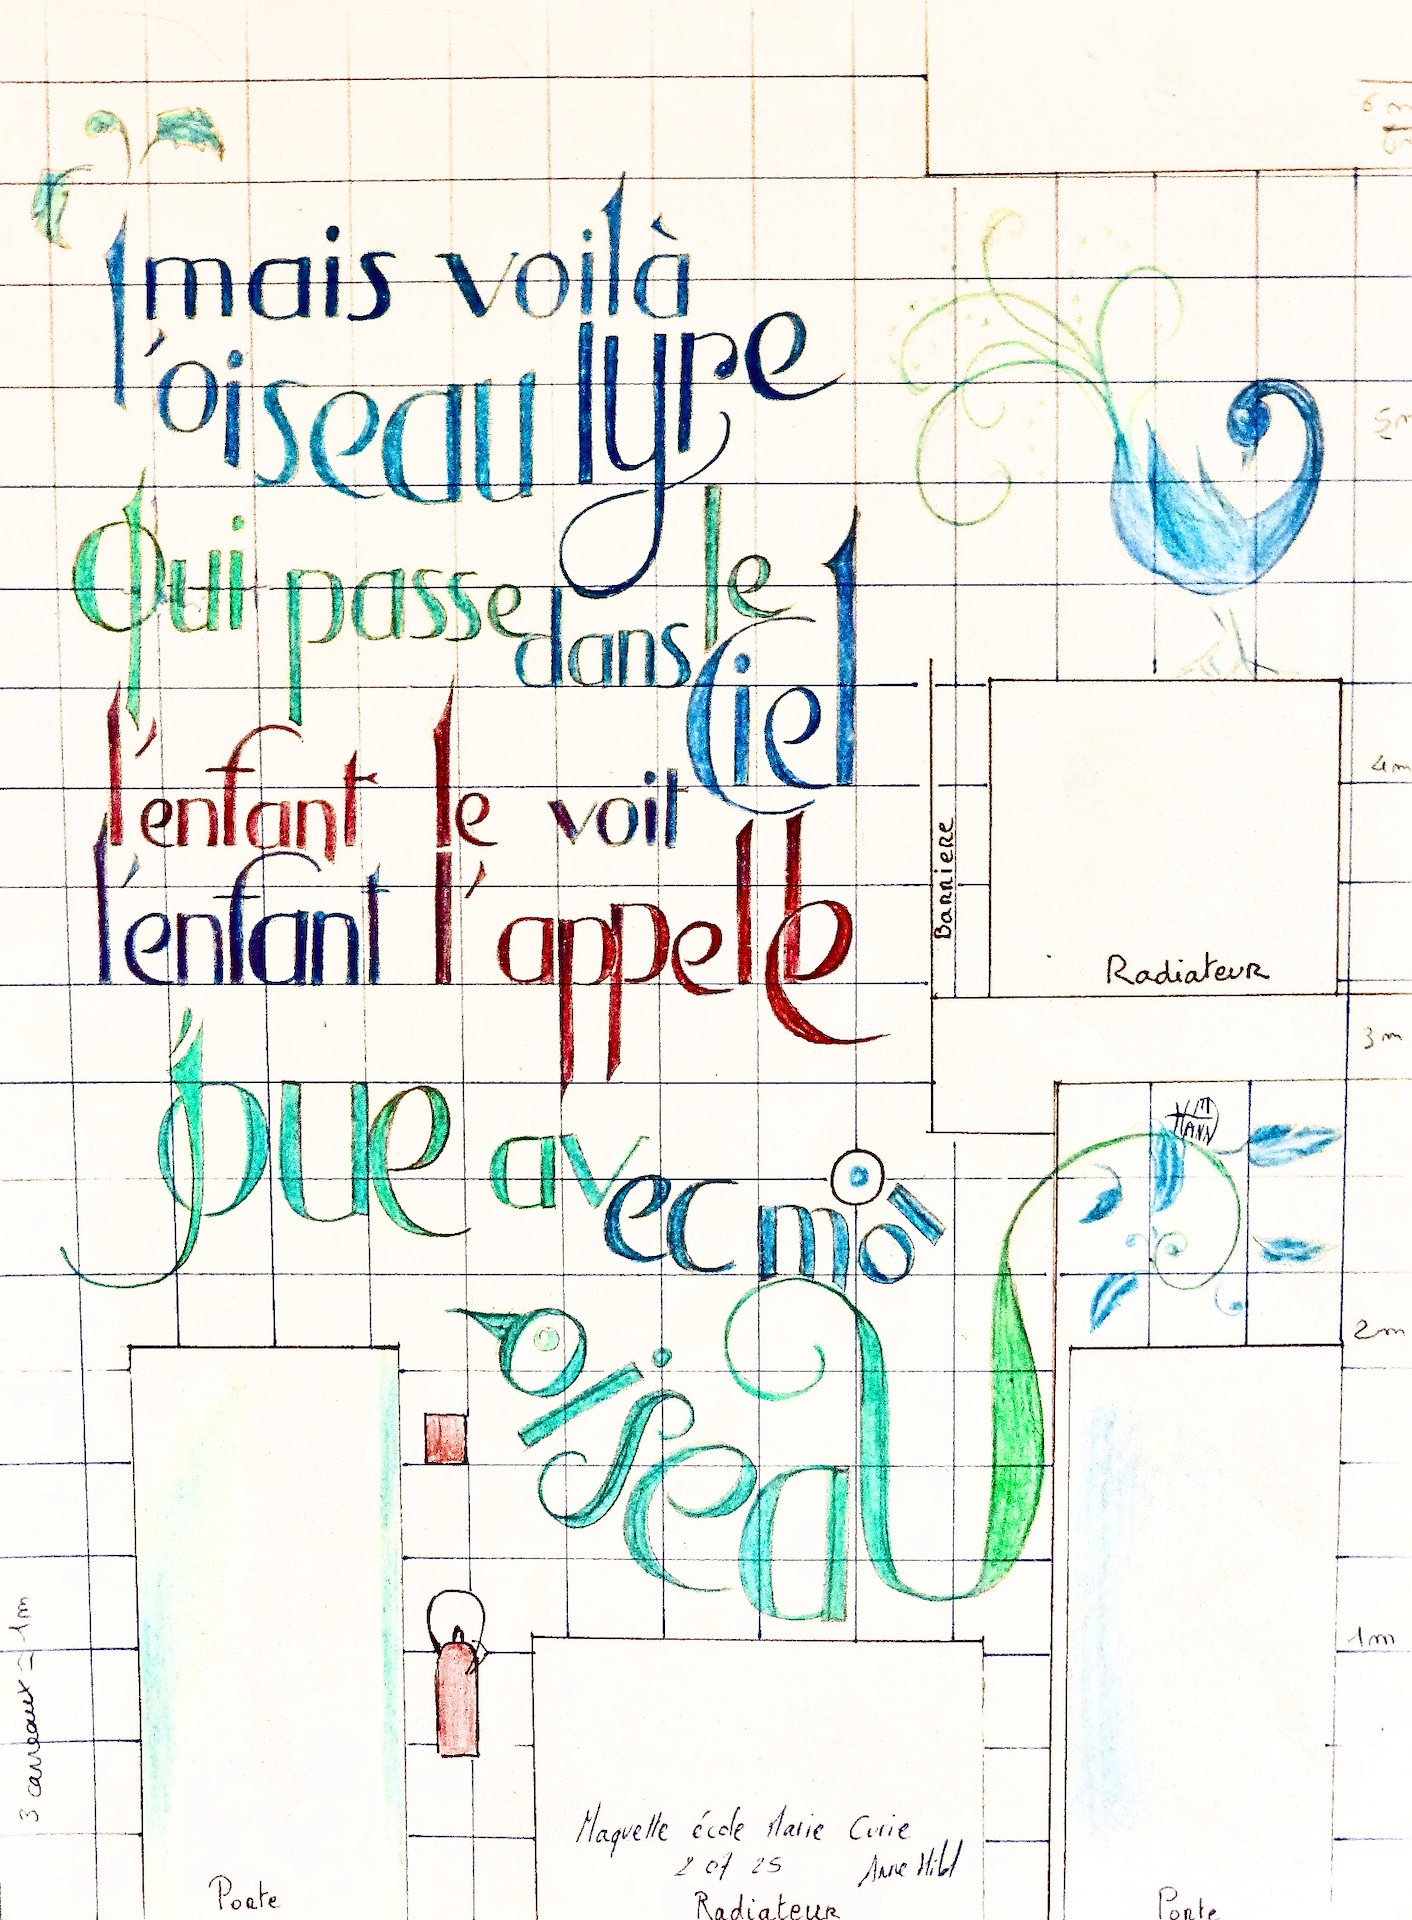 mais voilà
l'oiseau lyre
Qui passe dans le
Ciel
l'enfant le voit
l'enfant l'appelle
Joue avec moi
Oiseau
5m
4m
Barriere
Radiateur
3m
2m
1m
3 carreaux = 1m
Maquette école Marie Curie
Radiateur
Porte
Porte